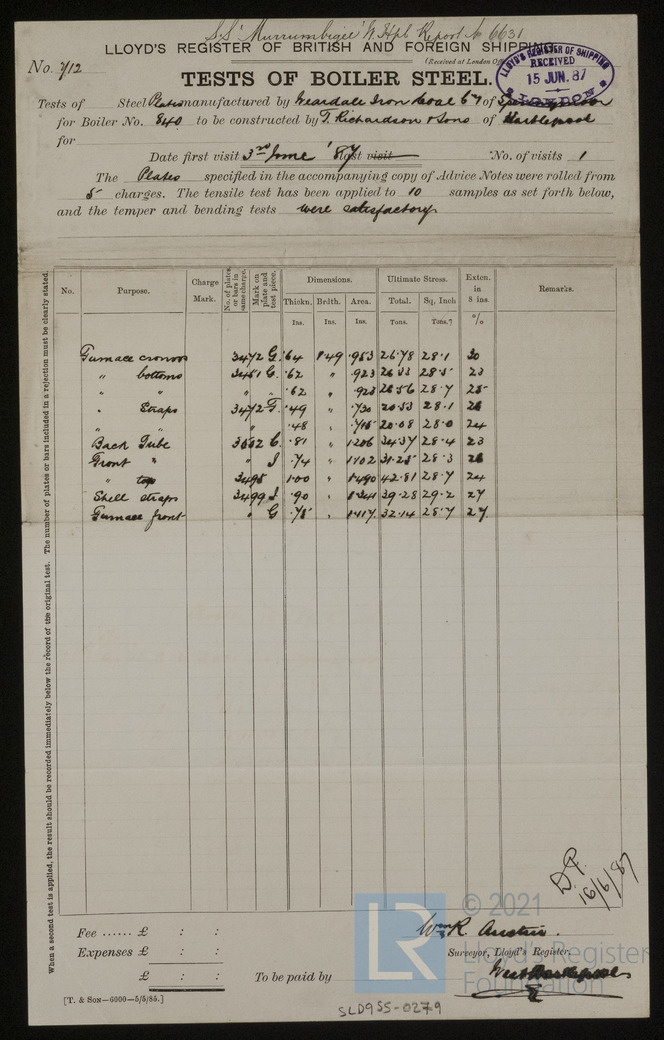 S.S. "Murrumbigee" W. Hpl Report No 6631
LLOYD'S REGISTER OF BRITISH AND FOREIGN SHIPPING.
(Received at London Off
LLOYD'S REGISTER OF SHIPPING
RECEIVED
15 JUN. 87
LONDON
No. 712
TESTS OF BOILER STEEL.
Tests of Steel Plates manufactured by Weardale Iron & Coal Co of
for Boiler No. 840 to be constructed by T. Richardson & Sons of Hartlepool
for
Date first visit 3rd June '87 last visit No. of visits 1
The Plates specified in the accompanying copy of Advice Notes were rolled from
5 charges. The tensile test has been applied to 10 samples as set forth below,
and the temper and bending tests were satisfactory
No. Purpose. Charge Mark. No. of plates or bars in same charge. Mark on plate and test piece. Dimensions. Ultimate Stress. Exten. in 8 ins. Remarks.
Thickn. Brdth. Area. Total. Sq. Inch
Ins. Ins. Ins. Tons. Tons. %
Furnace crowns 3472 G. .64 1.49 .953 26.78 28.1 30
" bottoms 3451 G. .62 " .923 28.5 23
" " " " .62 " .923 26.56 28.7 25
" Straps 3472 F. .49 " .730 20.53 28.1 26
" " " .48 " .715 20.08 28.0 24
Back Tube C. .81 " 1206 34.37 28.4 23
Front " " J .74 " 1102 31.25 28.3 26
" top 3495 1.00 " 1490 42.81 28.7 24
Shell straps 3499 J .90 " 1341 39.28 29.2 27
Furnace front " G .75 " 1117 32.14 28.7 27
When a second test is applied, the result should be recorded immediately below the record of the original test. The number of plates or bars included in a rejection must be clearly stated.
D.P.
16/6/87
Fee ...... £ : :
Expenses £ : :
£ : :
To be paid by
Wm R. Austin.
Surveyor, Lloyd's Register.
West Hartlepool
[T. & SON—6000—5/5/85.]
SLD955-0279
LR
© 2021
Lloyd's Register
Foundation